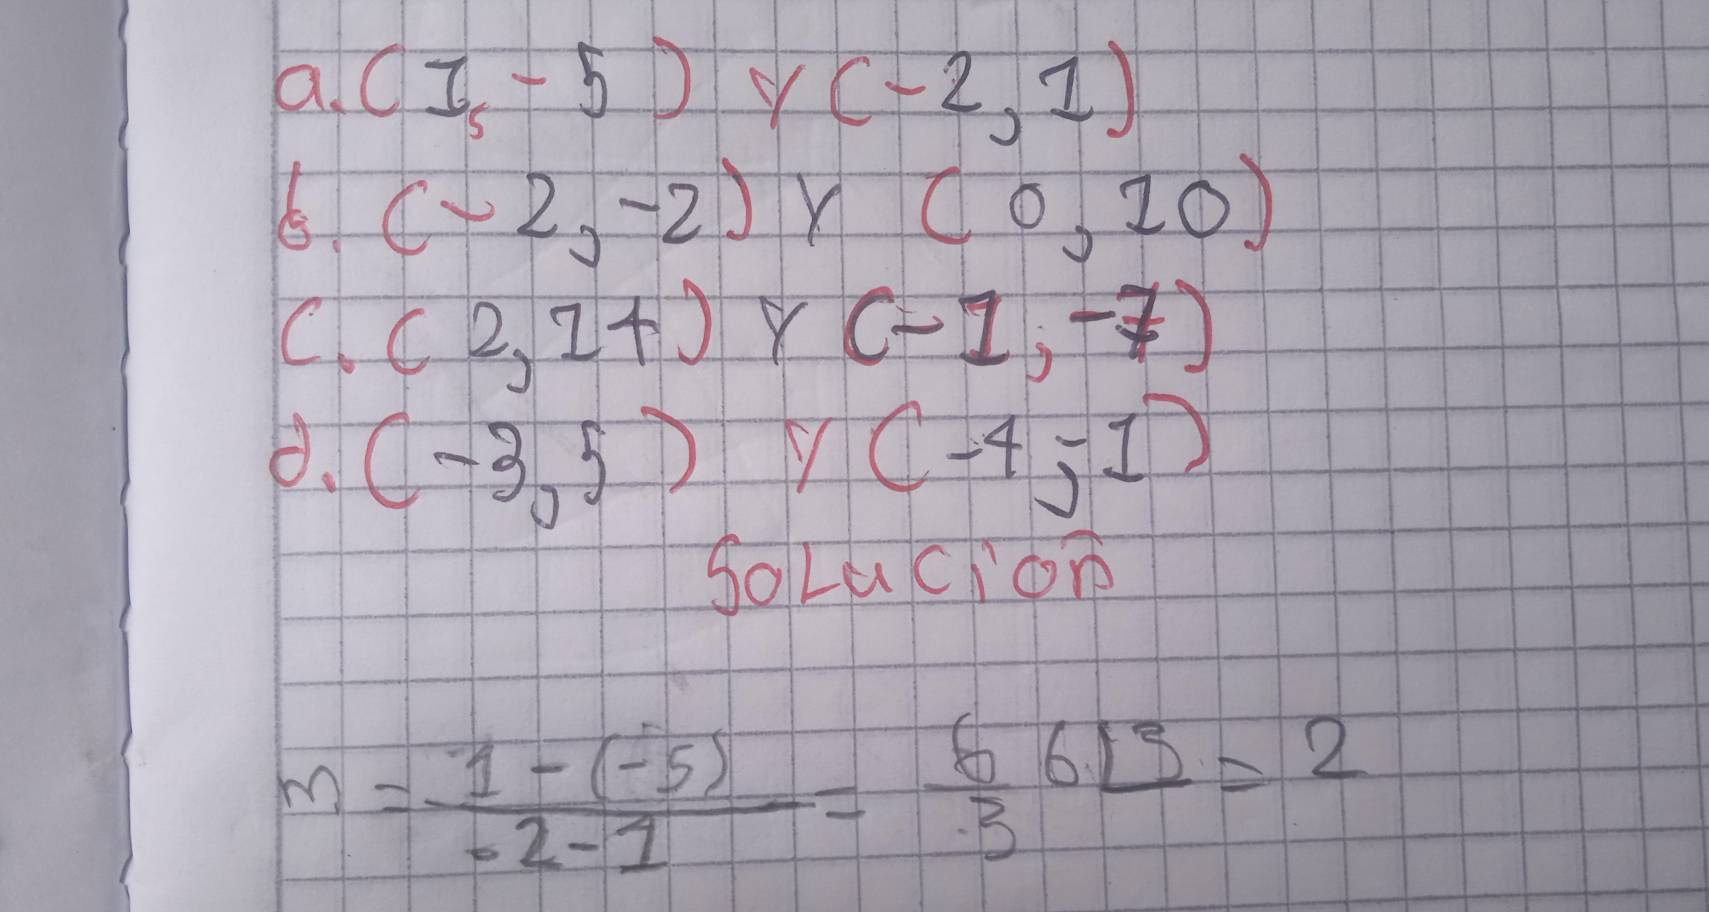 a. (1, -5) y (-2, 1)
b. (-2, -2) y (0, 10)
c. (2, 14) y (-1, -7)
d. (-3, 5) y (-4, -1)
Solución
m = 1 - (-5) / -2 - 1 = 6 / -3 6 | 3 = 2